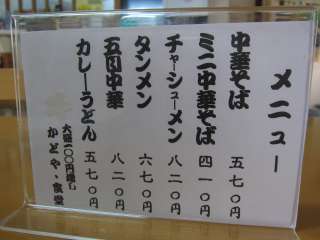 メニュー
中華そば 五七〇円
ミニ中華そば 四一〇円
チャーシューメン 八二〇円
タンメン 六七〇円
五目中華 八二〇円
カレーうどん 五七〇円
大盛一〇〇円増し
かどや食堂